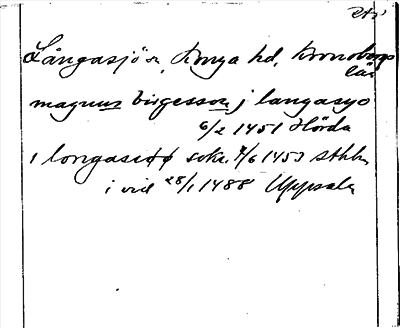 Långasjö sn, Konga hd, Kronobergs
län
magnus birgesson j langasyo
6/2 1451 Hörda
i longasiøø sokn 4/6 1453 Sthlm
i vid 28/1 1488 Uppsala